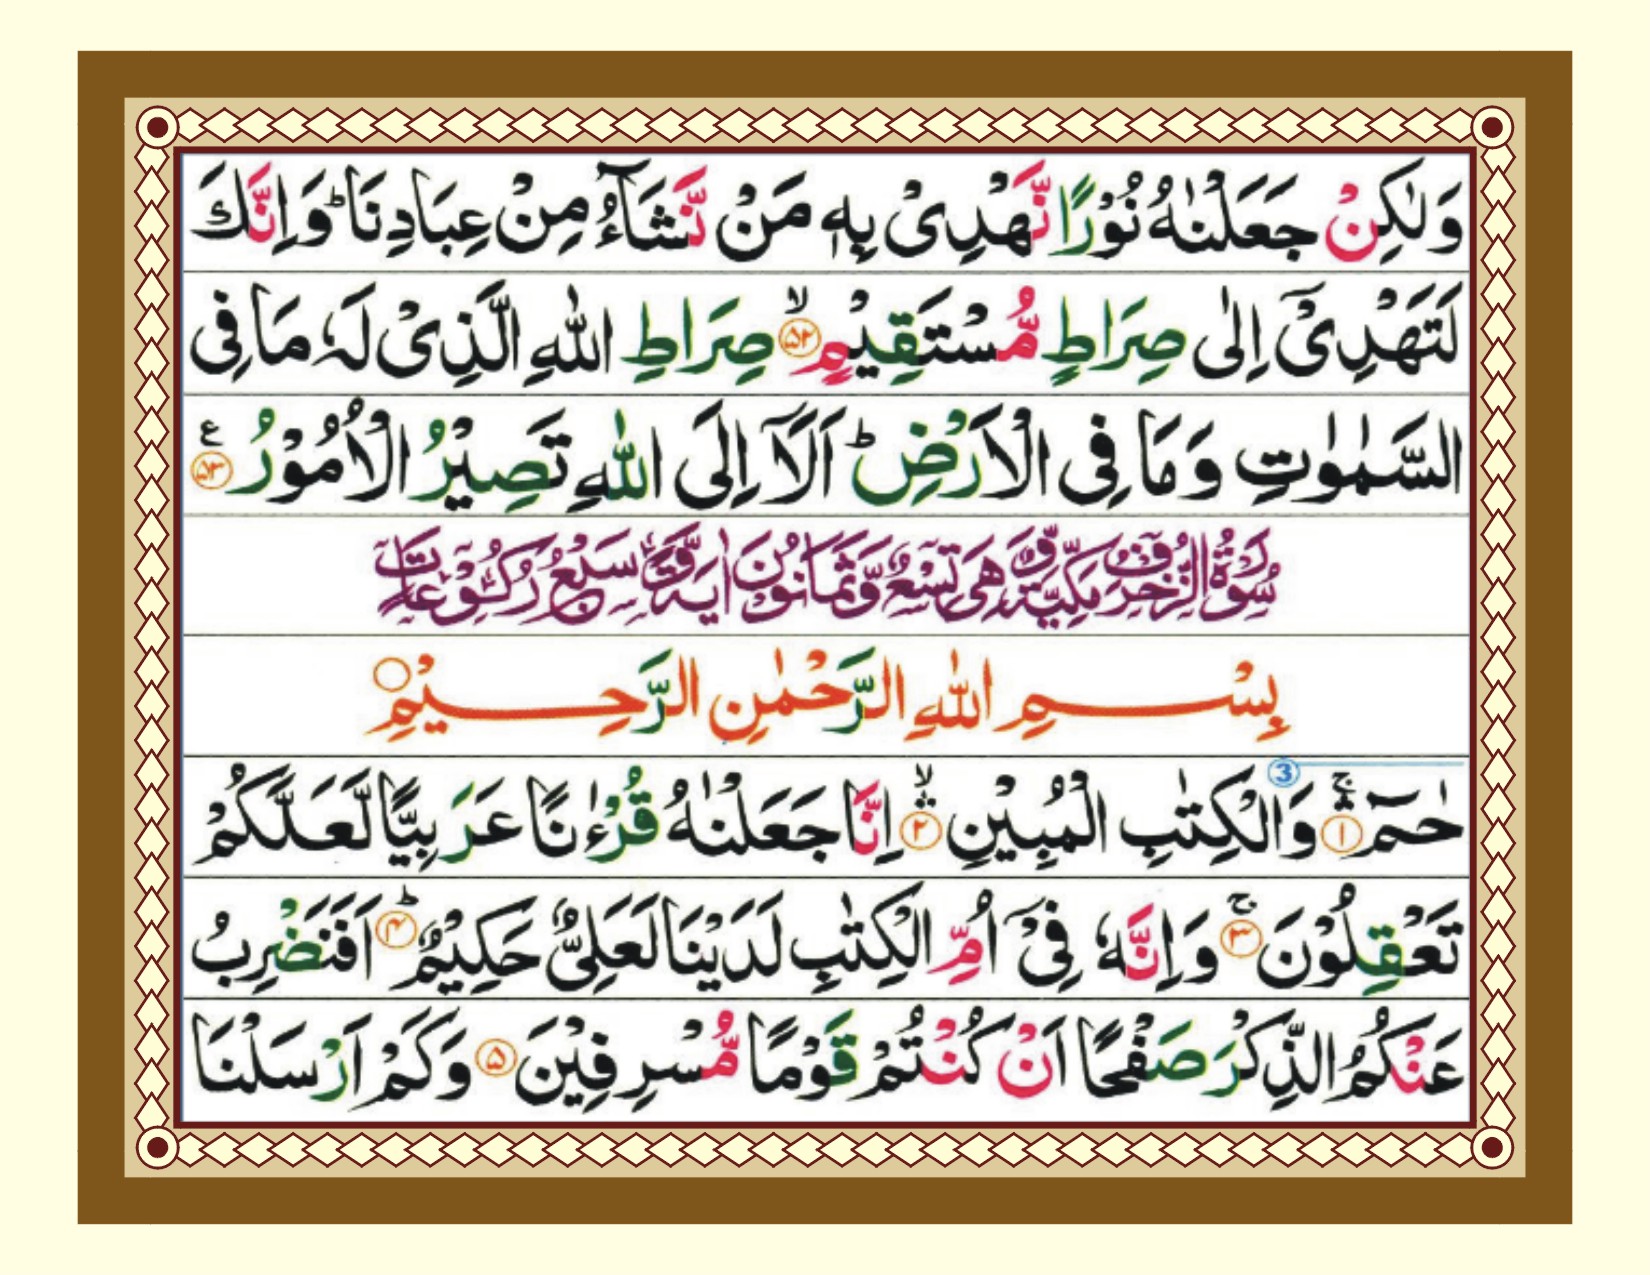 وَلٰكِنْ جَعَلْنٰهُ نُوْرًا نَّهْدِیْ بِهٖ مَنْ نَّشَآءُ مِنْ عِبَادِنَا ؕ وَاِنَّكَ
لَتَهْدِیْۤ اِلٰی صِرَاطٍ مُّسْتَقِیْمٍ ۙ﴿۵۲﴾ صِرَاطِ اللّٰهِ الَّذِیْ لَهٗ مَا فِی
السَّمٰوٰتِ وَمَا فِی الْاَرْضِ ؕ اَلَاۤ اِلَی اللّٰهِ تَصِیْرُ الْاُمُوْرُ ﴿۵۳﴾ ع
سُوْرَةُ الزُّخْرُفِ مَكِّیَّةٌ وَّهِیَ تِسْعٌ وَّثَمَانُوْنَ اٰیَةً وَّسَبْعُ رُكُوْعَاتٍ
بِسْمِ اللّٰهِ الرَّحْمٰنِ الرَّحِیْمِ ○
حٰمٓ ۚ﴿۱﴾ 3 وَالْكِتٰبِ الْمُبِیْنِ ۙ﴿۲﴾ اِنَّا جَعَلْنٰهُ قُرْءٰنًا عَرَبِیًّا لَّعَلَّكُمْ
تَعْقِلُوْنَ ۚ﴿۳﴾ وَاِنَّهٗ فِیْۤ اُمِّ الْكِتٰبِ لَدَیْنَا لَعَلِیٌّ حَكِیْمٌ ؕ﴿۴﴾ اَفَنَضْرِبُ
عَنْكُمُ الذِّكْرَ صَفْحًا اَنْ كُنْتُمْ قَوْمًا مُّسْرِفِیْنَ ﴿۵﴾ وَكَمْ اَرْسَلْنَا